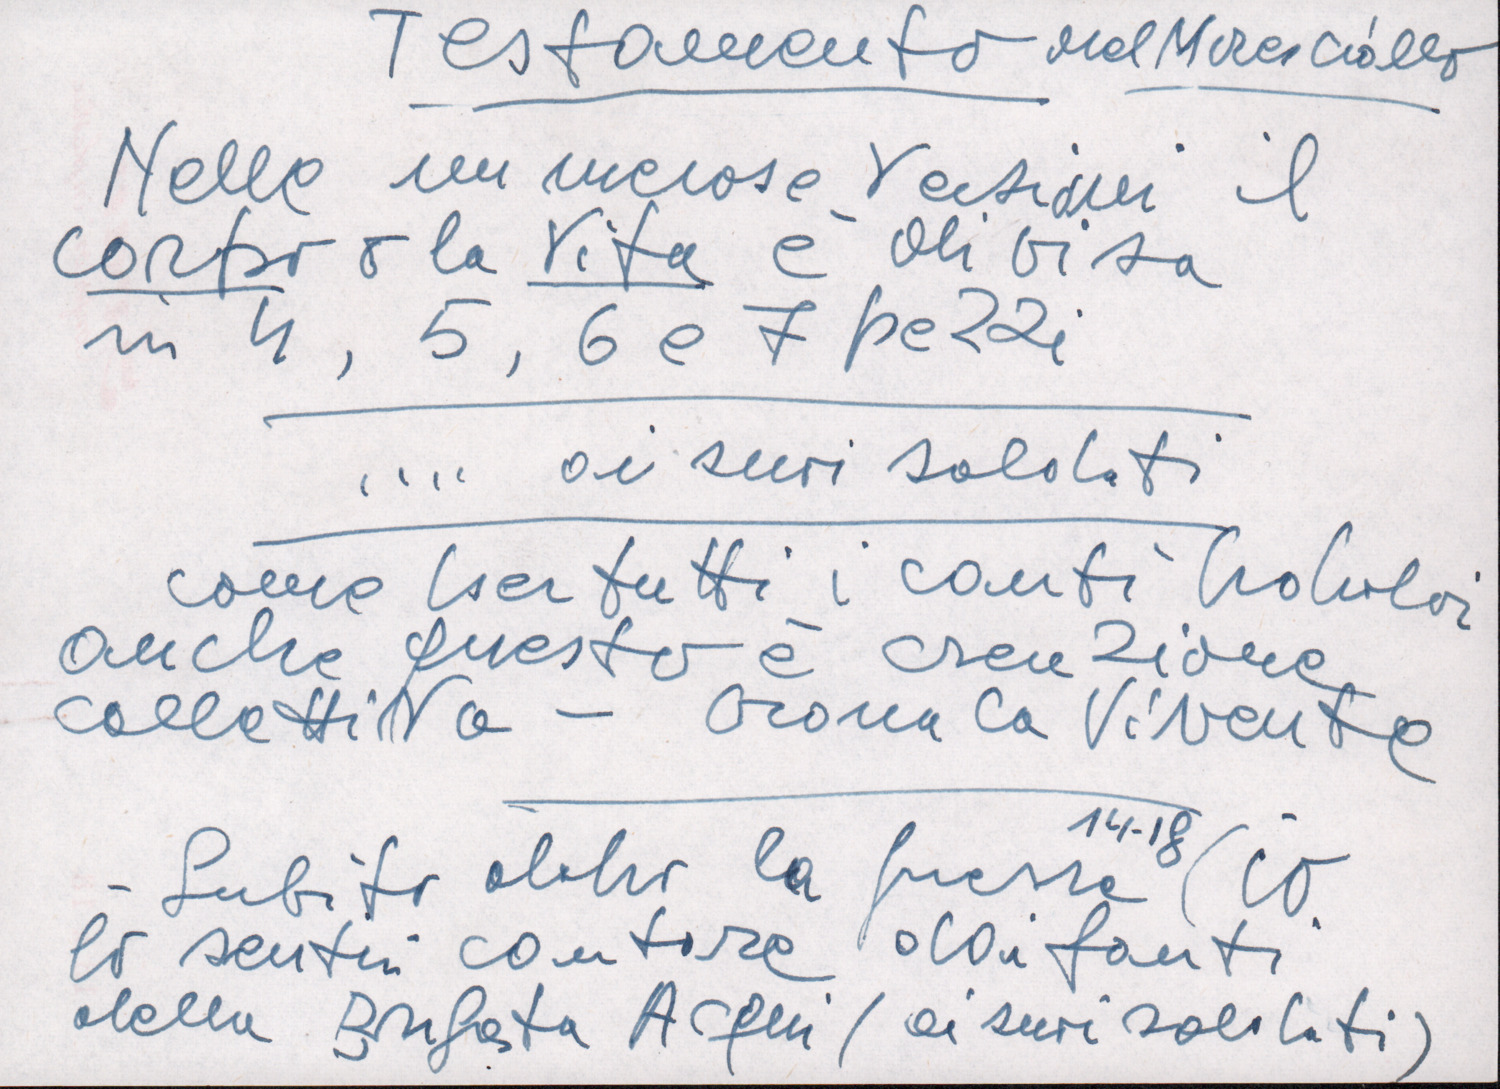 Testamento del Maresciallo
Nelle numerose versioni il
corpo o la vita è divisa
in 4, 5, 6 e 7 pezzi
.... ai suoi soldati
come per tutti i canti popolari
anche questo è creazione
collettiva - cronaca vivente
- Subito dopo la guerra 14-18 (io
lo sentii cantare dai fanti
della Brigata Acqui (ai suoi soldati)